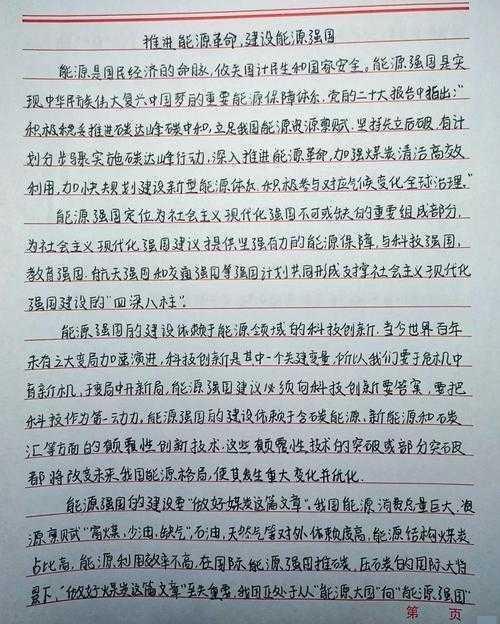 推进能源革命,建设能源强国
能源是国民经济的命脉,攸关国计民生和国家安全。能源强国是实
现中华民族伟大复兴中国梦的重要能源保障体系,党的二十大报告中指出:"
积极稳妥推进碳达峰碳中和,立足我国能源资源禀赋,坚持先立后破,有计
划分步骤实施碳达峰行动,深入推进能源革命,加强煤炭清洁高效
利用,加快规划建设新型能源体系,积极参与应对气候变化全球治理。"
能源强国定位为社会主义现代化强国不可或缺的重要组成部分,
为社会主义现代化强国建设提供坚强有力的能源保障,与科技强国,
教育强国,航天强国和交通强国等强国计划共同形成支撑社会主义现代化
强国建设的"四深八柱"。
能源强国的建设依赖于能源领域的科技创新,当今世界百年
未有之大变局加速演进,科技创新是其中一个关键变量,所以我们要于危机中
育新机,于变局中开新局,能源强国建设必须向科技创新要答案,要把
科技作为第一动力,能源强国的建设依赖于含碳能源,新能源和石炭
汇等方面的颠覆性创新技术,这些颠覆性技术的突破或部分突破
都将改变未来我国能源格局,使其发生重大变化并优化.
能源强国的建设要"做好煤炭这篇文章",我国能源消费总量巨大,资
源禀赋"富煤,少油,缺气",石油,天然气等对外依赖度高,能源结构煤炭
占比高,能源利用效率不高,在国际能源强国推碳,压石炭的国际大背
景下,"做好煤炭这篇文章"至关重要,我国正处于从"能源大国"向"能源强国"
第 页